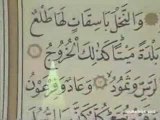 وَالنَّخْلَ بَاسِقَاتٍ لَهَا طَلْعٌ
بَلْدَةً مَيْتًا كَذَلِكَ الْخُرُوجُ
الرَّسِّ وَثَمُودُ وَعَادٌ وَفِرْعَوْنُ